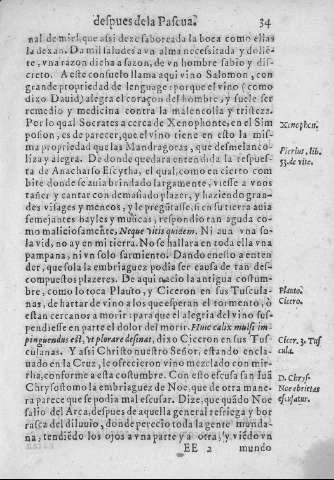 despues de la Pascua. 34
nal de miel, que assi dexe saboreada la boca como ellas
la dexan. Da mil saludes a vn alma necessitada y dolié-
te, vna razon dicha a sazon, de vn hombre sabio y dis-
creto. A este consuelo llama aqui vino Salomon, con
grande propriedad de lenguage: porque el vino (como
dixo Dauid) alegra el coraçon del hombre, y suele ser
remedio y medicina contra la malencolia y tristeza.
Por lo qual Socrates a cerca de Xenophonte, en el Sim
posion, es de parecer, que el vino tiene en esto la mis-
ma propriedad que las Mandragoras, que desmelanco-
liza y alegra. De donde quedara entendida la respues-
ta de Anacharso Escytha, el qual, como en cierto com
bite donde se auia brindado largamente, viesse a vnos
tañer y cantar con demasiado plazer, y haziendo gran-
des visages y meneos, y le pregũtasse, si en su tierra auia
semejantes bayles y musicas, respondio tan aguda co-
mo maliciosamente, Neque vitis quidem. Ni aun vna so-
la vid, no ay en mi tierra. No se hallara en toda ella vna
pampana, ni vn solo sarmiento. Dando en esto a enten
der, que sola la embriaguez podia ser causa de tan des-
compuestos plazeres. De aqui nacio la antigua costum-
bre, como lo toca Plauto, y Ciceron en sus Tuscula-
nas, de hartar de vino a los que esperan el tormento, ò
estan cercanos a morir: para que el alegria del vino sus-
pendiesse en parte el dolor del morir. Huic calix mulsi im-
pinguendus est, vt plorare desinat, dixo Ciceron en sus Tus-
culanas. Y assi Christo nuestro Señor, estando encla-
uado en la Cruz, le ofrecieron vino mezclado con mir-
rha, conforme a esta costumbre. Con esto escusa san Iuã
Chrysostomo la embriaguez de Noe, que de otra mane
ra parece que se podia mal escusar. Dize, que quãdo Noe
salio del Arca, despues de aquella general resriega y bor
rasca del diluuio, donde perecio toda la gente munda-
na, tendiẽdo los ojos a vna parte y a otra, y viẽdo vn
EE 2 mundo
Xenophon.
Pierius, lib.
53. de vite.
Plauto.
Cicero.
Cicer. 3. Tus
cula.
D. Chrys.
Noe ebrietas
excusatur.